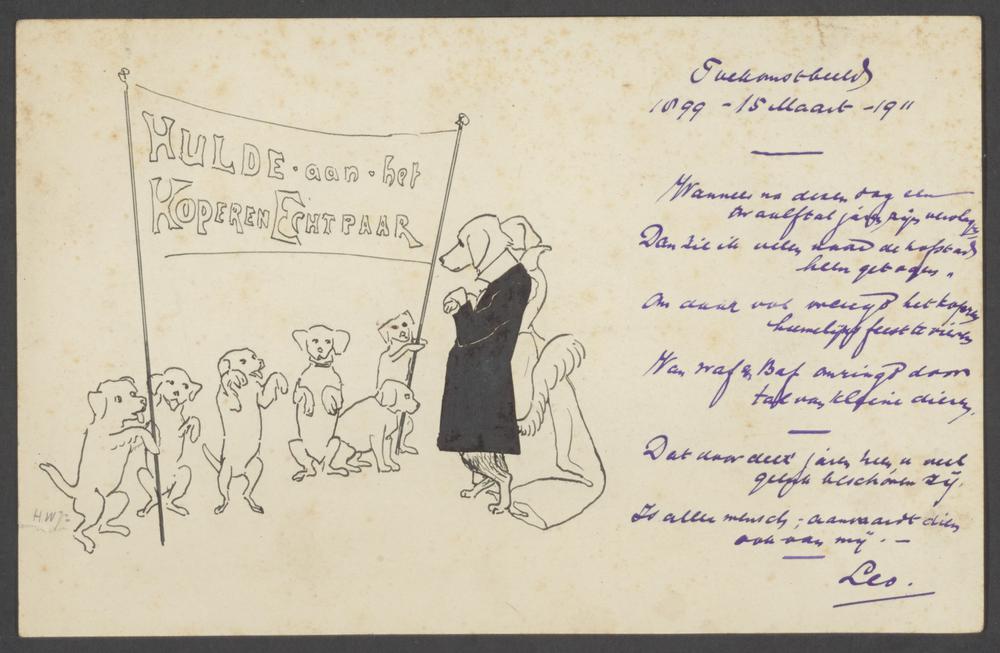 HULDE · aan · het
KOPEREN ECHTPAAR
H.W.J.
Toekomstbeeld
1899 - 15 Maart - 1911
Wanneer na dezen dag een
twaalftal jaren zijn vervlogen
Dan zie ik velen naar de hofstad
heen getogen,
Om daar het koperen
huwelijksfeest te vieren
Van Waf en Baf omringd door
tal van kleine dieren.
Dat door deez' jaren heen u veel
geluk beschoren zij.
Is aller wensch; aanvaardt dien
ook van mij. -
Leo.